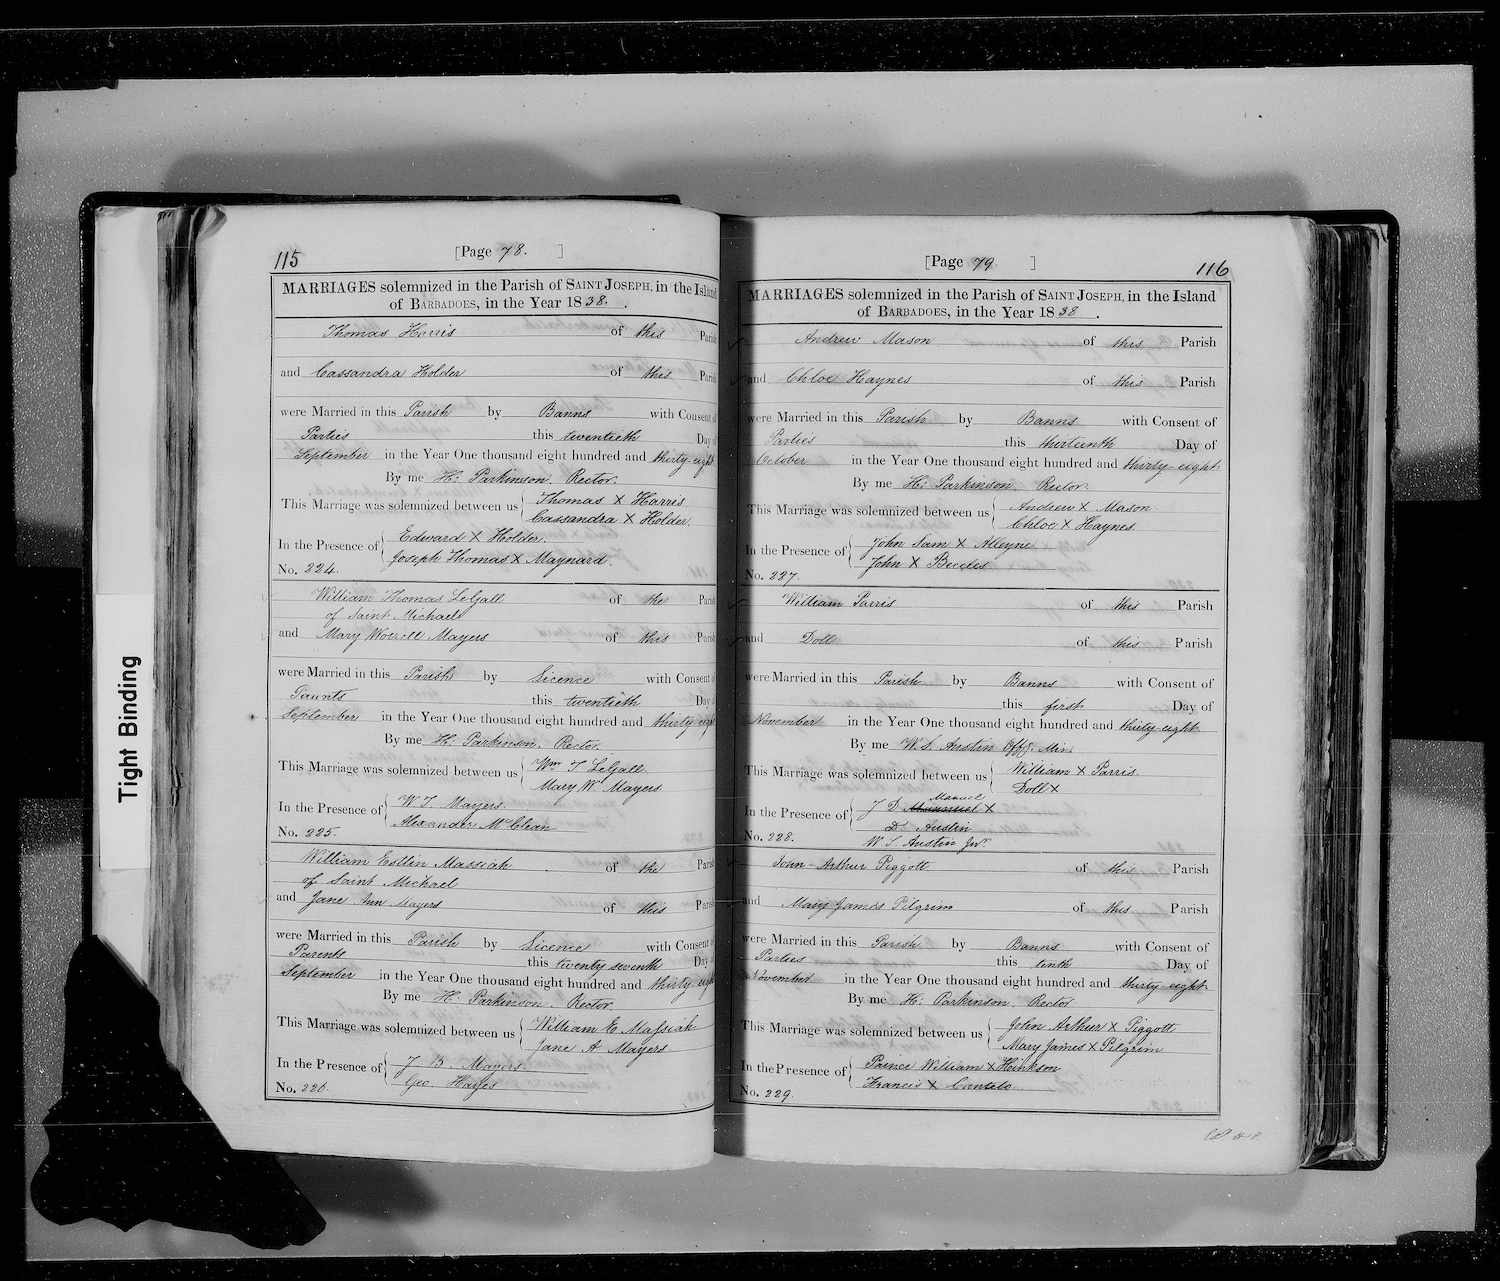 Tight Binding
115
[Page 78. ]
MARRIAGES solemnized in the Parish of SAINT JOSEPH, in the Island
of BARBADOES, in the Year 1838.
Thomas Harris of this Parish
and Cassandra Holder of this Parish
were Married in this Parish by Banns with Consent of
Parties this twentieth Day of
September in the Year One thousand eight hundred and thirty-eight
By me H: Parkinson. Rector.
This Marriage was solemnized between us { Thomas X Harris
Cassandra X Holder.
In the Presence of { Edward X Holder.
Joseph Thomas X Maynard.
No. 224.
William Thomas LeGall of the Parish
of Saint Michael
and Mary Worrell Mayers of this Parish
were Married in this Parish by Licence with Consent of
this twentieth Day of
September in the Year One thousand eight hundred and thirty-eight
By me H: Parkinson. Rector.
This Marriage was solemnized between us { Wm T LeGall.
Mary W Mayers
In the Presence of { W T Mayers.
Alexander McClean
No. 225.
William Estlin Massiah of the Parish
of Saint Michael
and Jane Ann Mayers of this Parish
were Married in this Parish by Licence with Consent of
Parents this twenty seventh Day of
September in the Year One thousand eight hundred and thirty-eight
By me H: Parkinson. Rector.
This Marriage was solemnized between us { William E Massiah
Jane A Mayers
In the Presence of { J B. Mayers
Geo Hayes
No. 226.
116
[Page 79 ]
MARRIAGES solemnized in the Parish of SAINT JOSEPH, in the Island
of BARBADOES, in the Year 1838.
Andrew Mason of this Parish
and Chloe Haynes of this Parish
were Married in this Parish by Banns with Consent of
Parties this thirteenth Day of
October in the Year One thousand eight hundred and thirty-eight
By me H: Parkinson. Rector.
This Marriage was solemnized between us { Andrew X Mason
Chloe X Haynes
In the Presence of { John Sam X Alleyne
John X
No. 227.
William Parris of this Parish
and Doll of this Parish
were Married in this Parish by Banns with Consent of
this first Day of
November in the Year One thousand eight hundred and thirty-eight
By me W. S. Austin Offg. Min.
This Marriage was solemnized between us { William X Parris.
Doll X
Manuel
In the Presence of { J D X
D. Austin
No. 228. W S Austin Jur.
John-Arthur Piggott of this Parish
and Mary James Pilgrim of this Parish
were Married in this Parish by Banns with Consent of
Parties this tenth Day of
November in the Year One thousand eight hundred and thirty-eight
By me H: Parkinson. Rector
This Marriage was solemnized between us { John Arthur X Piggott
Mary James X Pilgrim
In the Presence of { Prince William X Hinkson
Francis X Cantelo
No. 229.